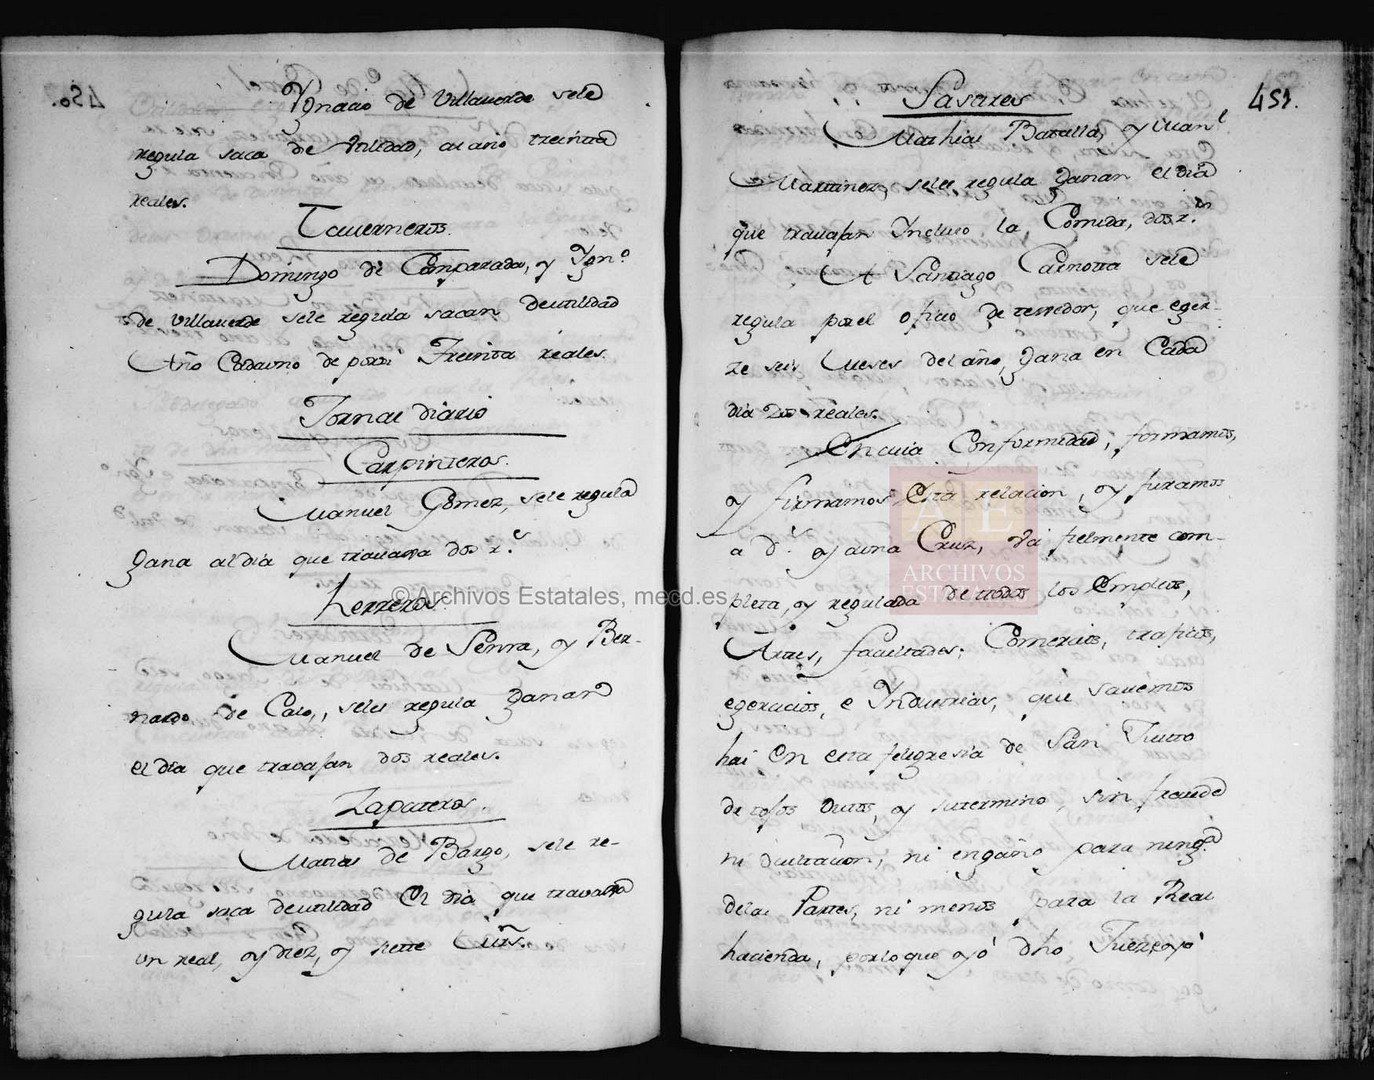 Ygnacio de Villauerde sele
regula saca de Utilidad, al año treinta
reales.
Tauerneros.
Domingo de Camparada, y Ygn.º
de Villauerde sele regula sacan deutilidad
Año Cadauno de por si Treinta reales.
Jornal diario
Carpinteros.
Manuel Gomez, sele regula
gana aldia que trauaxa dos r.ˢ
Herreros.
Manuel de Senra, y Ber-
nardo de Calo, seles regula ganan
el dia que trauajan dos reales.
Zapateros.
Matias de Bargo, sele re-
gula saca deutilidad el dia que trauaxa
un real, y diez, y siette
451.
Sastres
Mathias Batalla, y Man.l
Martinez, seles regula ganan el dia
que trauajan Yncluso la Comida, dos r.ˢ
A Santiago Carnotta sele
regula por el oficio de texedor, que eger-
ze seis Meses del año, gana en Cada
dia Dos reales.
En cuia Conformidad, formamos,
y firmamos Esta relacion, y juramos
a D.ˢ y auna Cruz, ba fielmente com-
pleta, y regulada de ttodos los Empleos,
Artes, facultades, Comercios, traficos,
egercicios, e Yndustrias, que sauemos
hai en esta feligresia de San Justo
de tojos outos, y su termino, sin fraude
ni ocultacion, ni engaño para ning.a
delas Partes, ni menos para la Real
hacienda, porloque yo dho Juez, y yo
© Archivos Estatales, mecd.es
AE
ARCHIVOS
ESTATALES